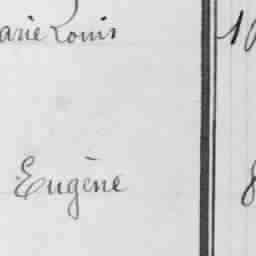 arie Louis 10
Eugène 8